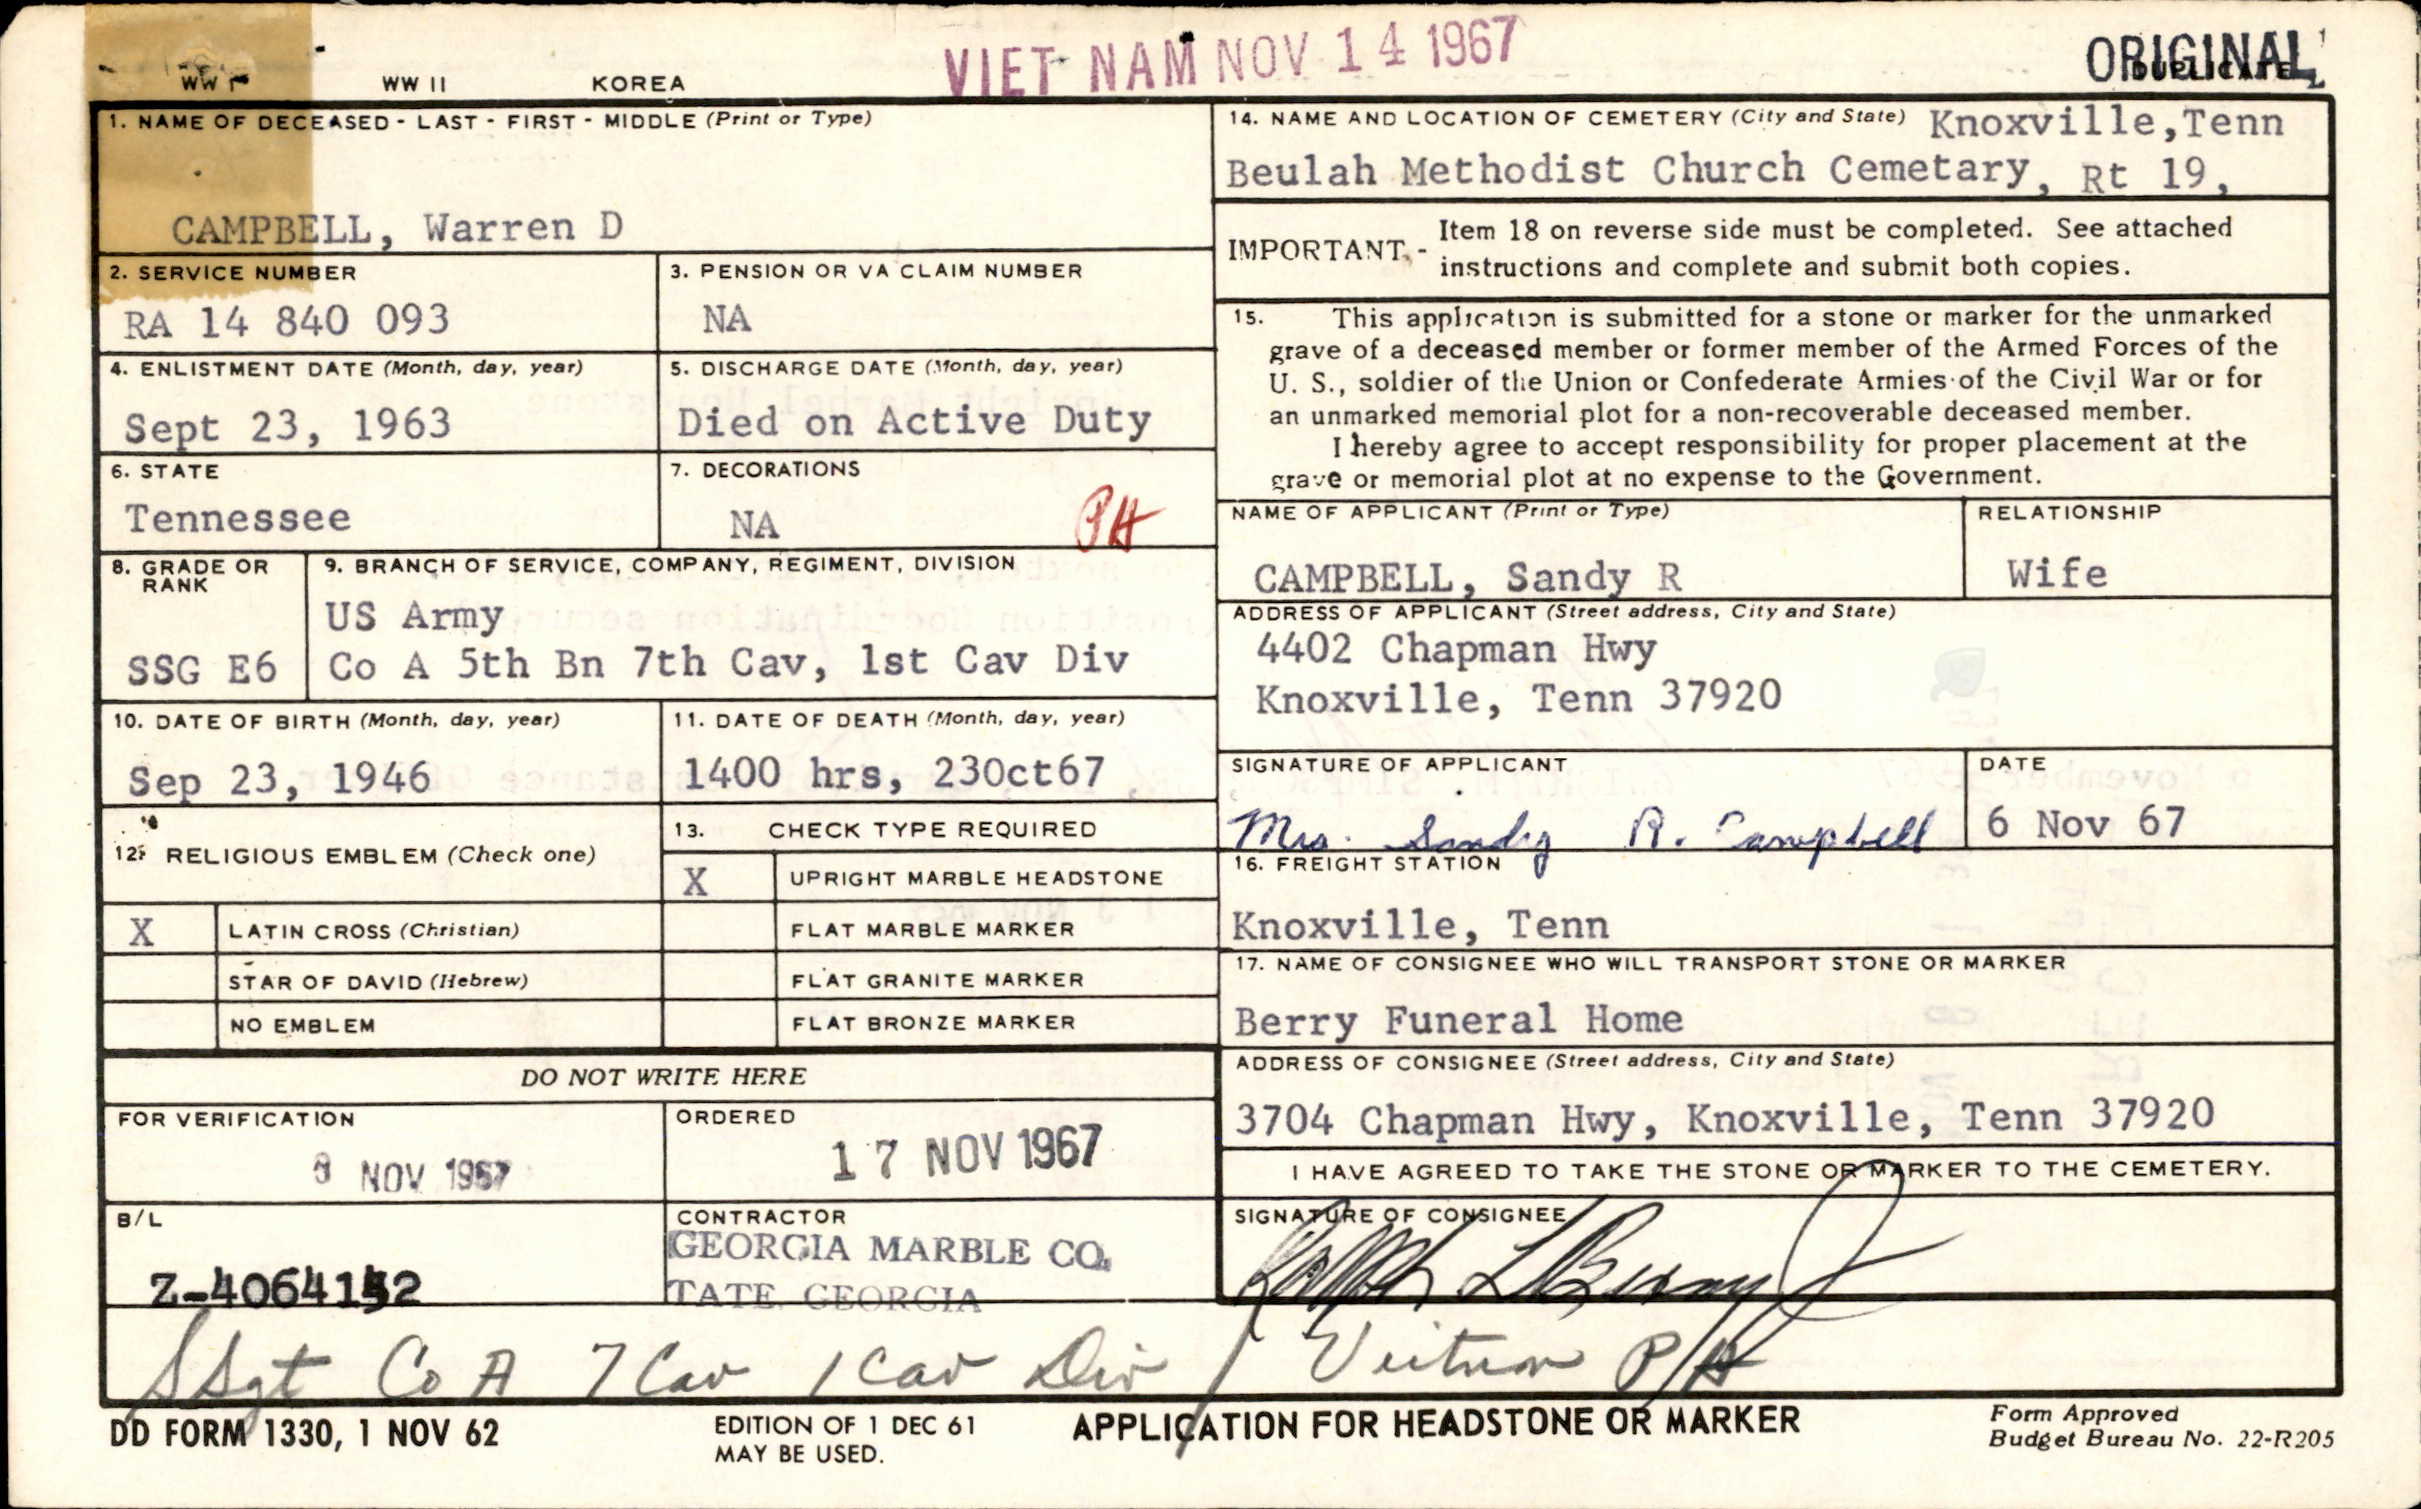 WW I
WW II
KOREA
VIET NAM NOV 14 1967
ORIGINAL
1. NAME OF DECEASED - LAST - FIRST - MIDDLE (Print or Type)
CAMPBELL, Warren D
2. SERVICE NUMBER
RA 14 840 093
3. PENSION OR VA CLAIM NUMBER
NA
4. ENLISTMENT DATE (Month, day, year)
Sept 23, 1963
5. DISCHARGE DATE (Month, day, year)
Died on Active Duty
6. STATE
Tennessee
7. DECORATIONS
NA PH
8. GRADE OR
RANK
SSG E6
9. BRANCH OF SERVICE, COMPANY, REGIMENT, DIVISION
US Army
Co A 5th Bn 7th Cav, 1st Cav Div
10. DATE OF BIRTH (Month, day, year)
Sep 23, 1946
11. DATE OF DEATH (Month, day, year)
1400 hrs, 23Oct67
12. RELIGIOUS EMBLEM (Check one)
X LATIN CROSS (Christian)
STAR OF DAVID (Hebrew)
NO EMBLEM
13. CHECK TYPE REQUIRED
X UPRIGHT MARBLE HEADSTONE
FLAT MARBLE MARKER
FLAT GRANITE MARKER
FLAT BRONZE MARKER
DO NOT WRITE HERE
FOR VERIFICATION
NOV 1967
ORDERED
17 NOV 1967
B/L
Z-4064152
CONTRACTOR
GEORGIA MARBLE CO.
TATE GEORGIA
14. NAME AND LOCATION OF CEMETERY (City and State) Knoxville,Tenn
Beulah Methodist Church Cemetary, Rt 19,
IMPORTANT - Item 18 on reverse side must be completed. See attached
instructions and complete and submit both copies.
15. This application is submitted for a stone or marker for the unmarked
grave of a deceased member or former member of the Armed Forces of the
U. S., soldier of the Union or Confederate Armies of the Civil War or for
an unmarked memorial plot for a non-recoverable deceased member.
I hereby agree to accept responsibility for proper placement at the
grave or memorial plot at no expense to the Government.
NAME OF APPLICANT (Print or Type)
CAMPBELL, Sandy R
RELATIONSHIP
Wife
ADDRESS OF APPLICANT (Street address, City and State)
4402 Chapman Hwy
Knoxville, Tenn 37920
SIGNATURE OF APPLICANT
Mrs. Sandy R. Campbell
DATE
6 Nov 67
16. FREIGHT STATION
Knoxville, Tenn
17. NAME OF CONSIGNEE WHO WILL TRANSPORT STONE OR MARKER
Berry Funeral Home
ADDRESS OF CONSIGNEE (Street address, City and State)
3704 Chapman Hwy, Knoxville, Tenn 37920
I HAVE AGREED TO TAKE THE STONE OR MARKER TO THE CEMETERY.
SIGNATURE OF CONSIGNEE
Ralph L Berry
SSgt Co A 7 Cav 1 Cav Div / Vietnam PH
DD FORM 1330, 1 NOV 62
EDITION OF 1 DEC 61
MAY BE USED.
APPLICATION FOR HEADSTONE OR MARKER
Form Approved
Budget Bureau No. 22-R205